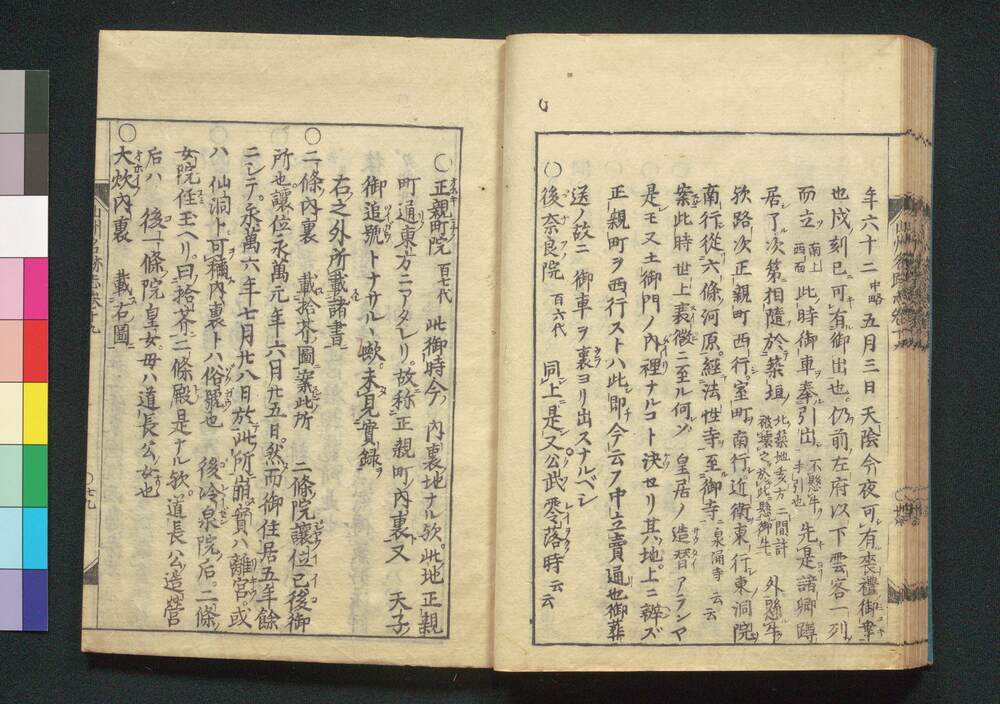 年六十二 中略 五月三日 天陰今夜可有喪禮御幸
也戌刻已可有御出也仍前左府以下雲客一列
而立 南上西面 此時御車奉引出 不懸牛手引也 先是諸卿蹲
居了次第相隨於築垣 北築地亥方二間計被壊之於此懸御牛 外懸牛
欤路次正親町西行室町南行近衛東行東洞院
南行從六條河原經法性寺至御寺 泉涌寺 云云
案此時世上衰微ニ至ル何ゾ 皇居ノ造替アランヤ
是モ又土御門ノ内裡ナルコト決セリ其地上ニ辨ズ
正親町ヲ西行ストハ此即今云フ中立賣通也御葬
送ノ故ニ 御車ヲ裏ヨリ出スナルベシ
〇後奈良院 百六代 同上是又公武零落時 云云
〇正親町院 百七代 此御時今ノ内裏地ナル欤此地正親
町通東方ニアタレリ故称正親町内裏又 天子
御追號トナサル丶歟未見實録
右之外所載諸書
〇二條内裏 載拾芥圖案此所 二條院讓位已後御
所也讓位永萬元年六月廿五日然而御住居五年餘
ニシテ永萬六年七月廿八日於此所崩實ハ離宮或
ハ 仙洞ト可稱内裏トハ俗號也 後冷泉院ノ后二條ノ
女院住玉ヘリ曰拾芥ニ二條殿是ナル欤道長公造營
后ハ 後一條院皇女母ハ道長公ノ女也
〇大炊内裏 載右圖
〇廿九